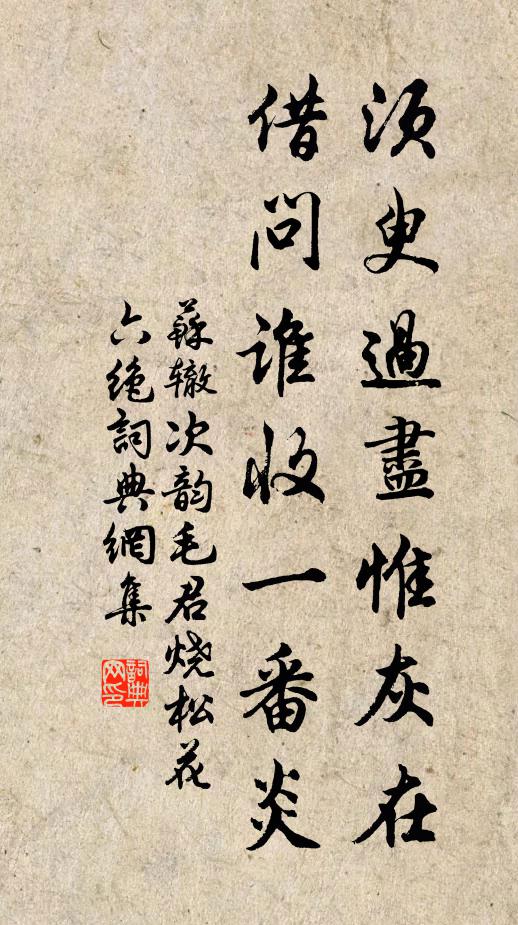 須臾過盡惟灰在
借問誰收一番炎
蘇辙次韵毛君烧松花
六绝詞典網集
詞典网印